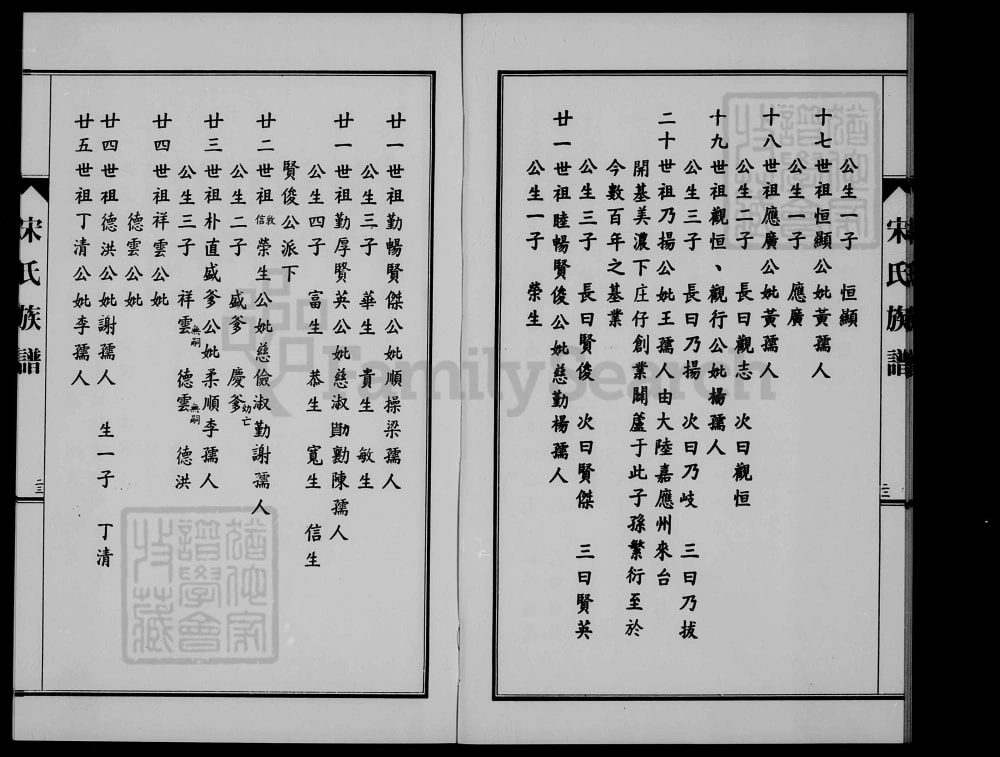 宋氏族譜
公生一子 恒顯
十七世祖恒顯公妣黃孺人
公生一子 應廣
十八世祖應廣公妣黃孺人
公生二子 長曰觀志 次曰觀恒
十九世祖觀恒、觀行公妣楊孺人
公生三子 長曰乃揚 次曰乃岐 三曰乃拔
二十世祖乃揚公妣王孺人由大陸嘉應州來台
開基美濃下庄仔創業闢蘆于此子孫繁衍至於
今數百年之基業
公生三子 長曰賢俊 次曰賢傑 三曰賢英
廿一世祖睦暢賢俊公妣慈勤楊孺人
公生一子 榮生
廿一世祖勤暢賢傑公妣順操梁孺人
公生三子 華生 貴生 敏生
廿一世祖勤厚賢英公妣慈淑勤陳孺人
公生四子 富生 恭生 寬生 信生
賢俊公派下
廿二世祖敦信榮生公妣慈儉淑勤謝孺人
公生二子 盛爹 慶爹幼亡
廿三世祖朴直盛爹公妣柔順李孺人
公生三子 祥雲無嗣 德雲無嗣 德洪
廿四世祖祥雲公妣
德雲公妣
廿四世祖德洪公妣謝孺人 生一子 丁清
廿五世祖丁清公妣李孺人
宋氏族譜
FamilySearch